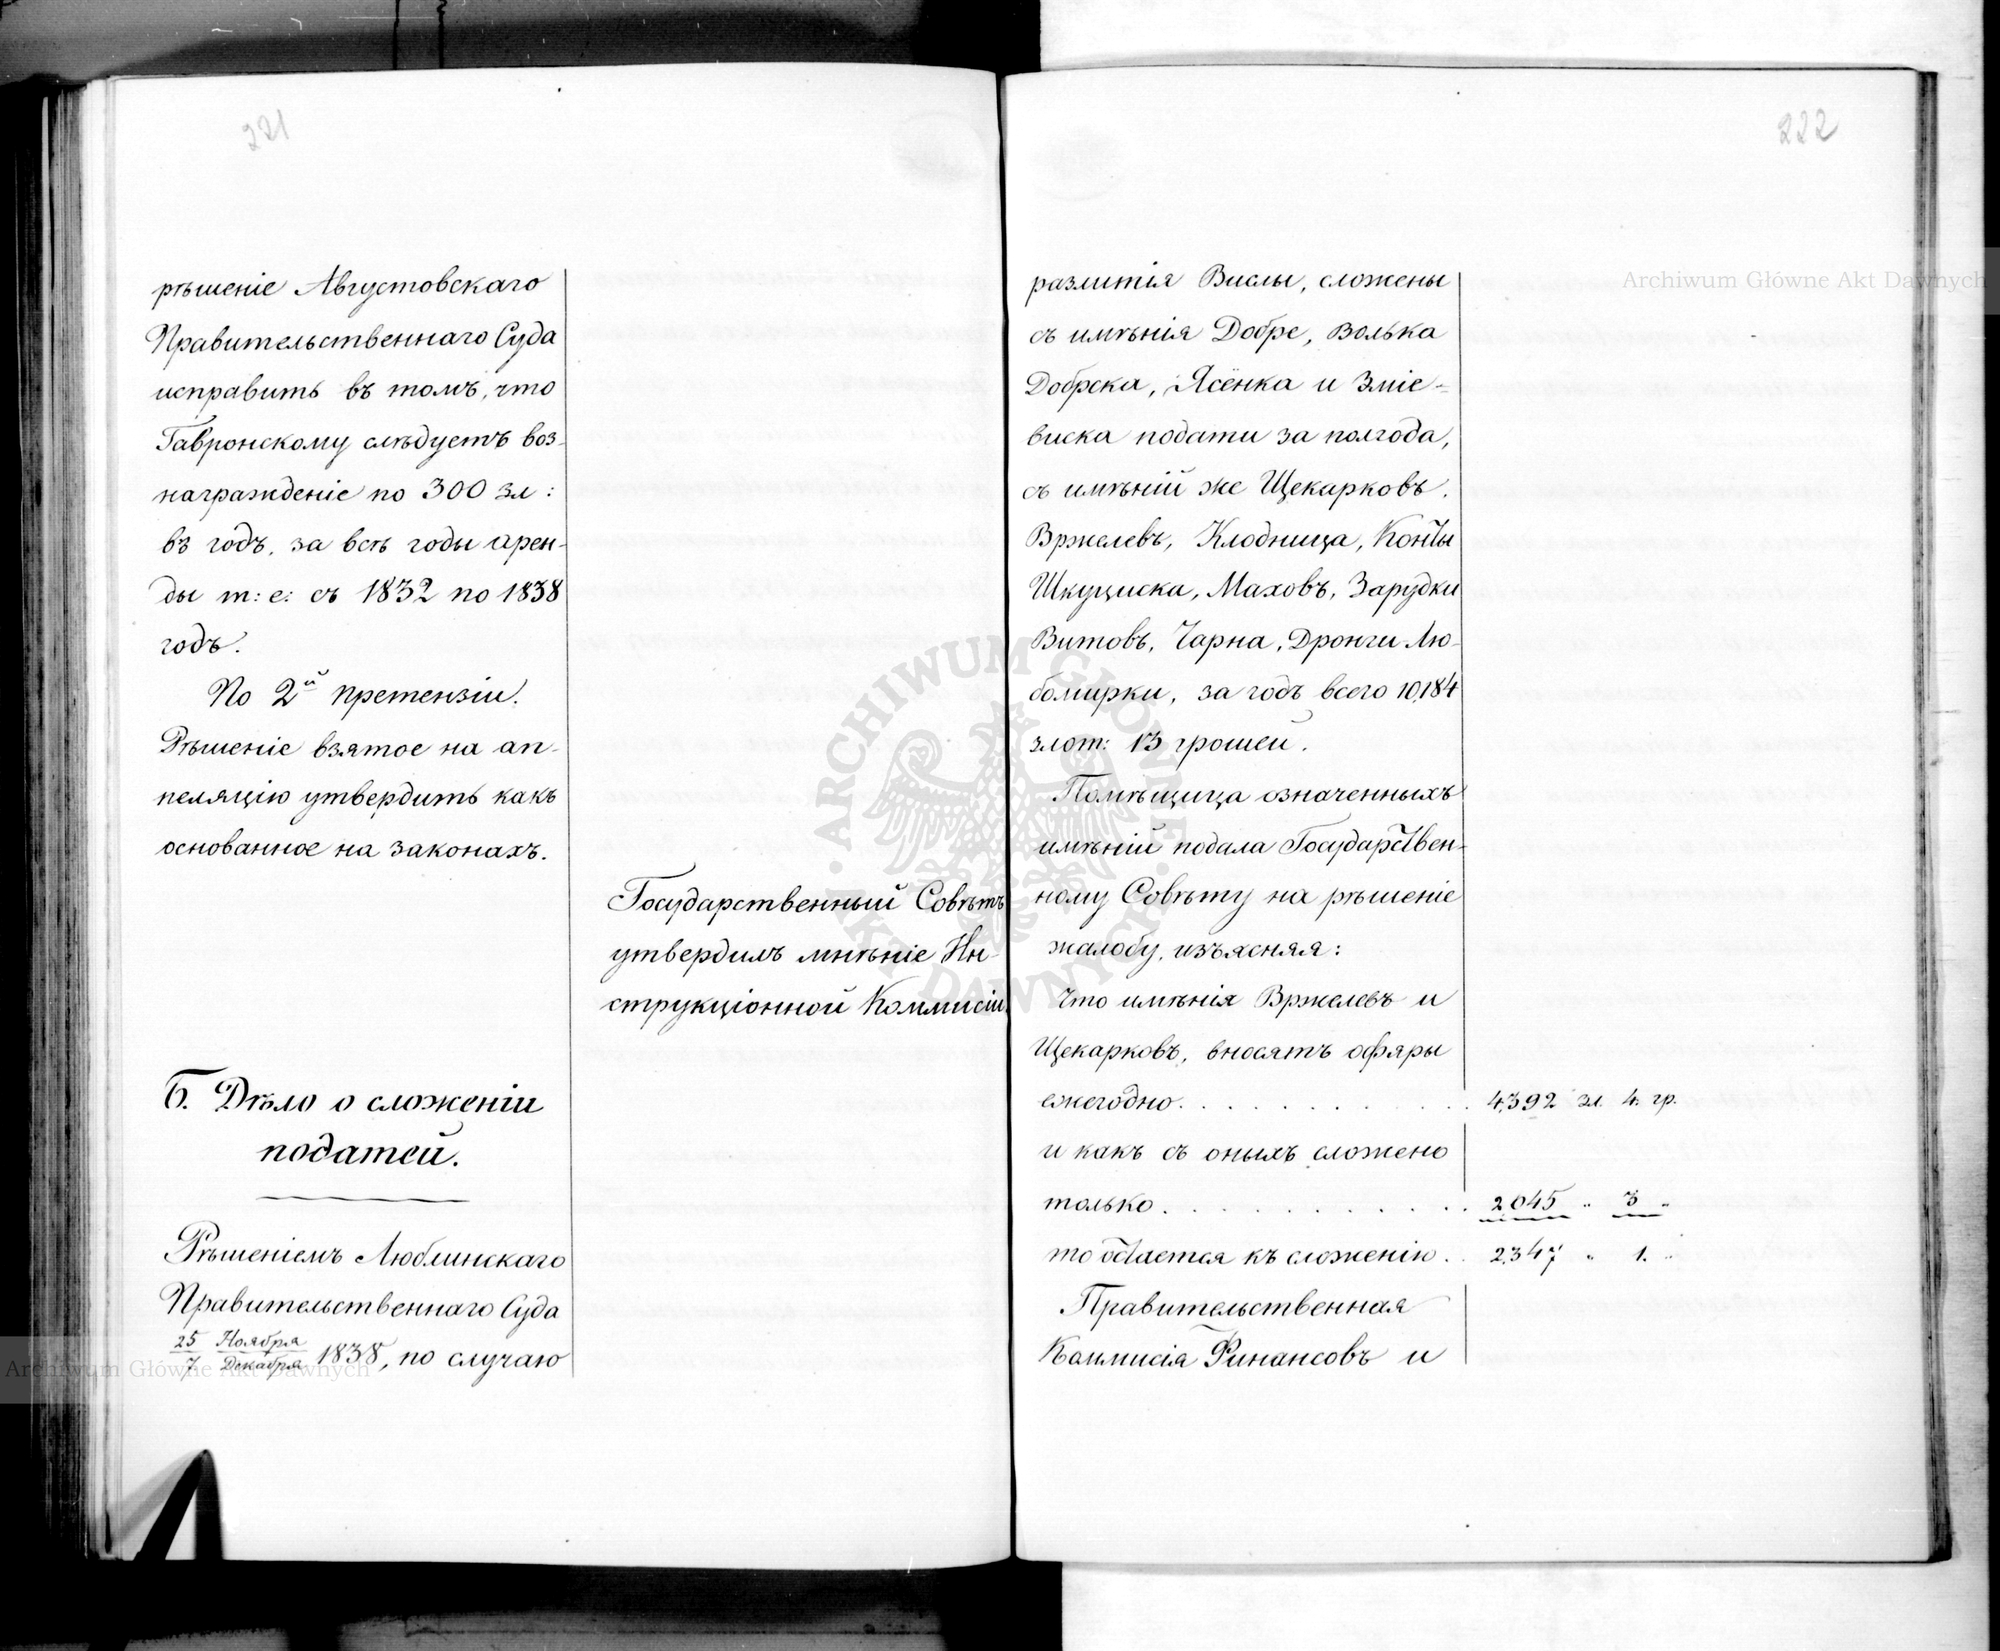 221
рѣшеніе Августовскаго
Правительственнаго Суда
исправить въ томъ, что
Гавронскому слѣдуетъ воз-
награжденіе по 300 зл:
въ годъ, за всѣ годы арен-
ды т: е: съ 1832 по 1838
годъ.
По 2й претензіи.
Рѣшеніе взятое на ап-
пеляцію утвердить какъ
основанное на законахъ.
Государственный Совѣтъ
утвердилъ мнѣніе Ин-
струкціонной Коммисіи.
Б. Дѣло о сложеніи
податей.
Рѣшеніемъ Люблинскаго
Правительственнаго Суда
25 Ноября / 7 Декабря 1838, по случаю
222
разлитія Вислы, сложены
съ имѣнія Добре, Волька
Добрска, Ясёнка и Зміе-
виска подати за полгода,
съ имѣній же Щекарковъ,
Вржелевъ, Клодница, Конты
Шкуциска, Маховъ, Зарудки
Витовъ, Чарна, Дронги Лю-
бомирки, за годъ всего 10,184
злот: 13 грошей.
Помѣщица означенныхъ
имѣній подала Государствен-
ному Совѣту на рѣшеніе
жалобу, изъясняя:
Что имѣнія Вржелевъ и
Щекарковъ, вносятъ офяры
ежегодно . . . . . . . . . . . 4,392 зл. 4. гр.
и какъ съ оныхъ сложено
только . . . . . . . . . . . 2,045 " 3 "
то остается къ сложенію . . 2,347 " 1. "
Правительственная
Коммисія Финансовъ и
Archiwum Główne Akt Dawnych
Archiwum Główne Akt Dawnych
ARCHIWUM GŁÓWNE AKT DAWNYCH